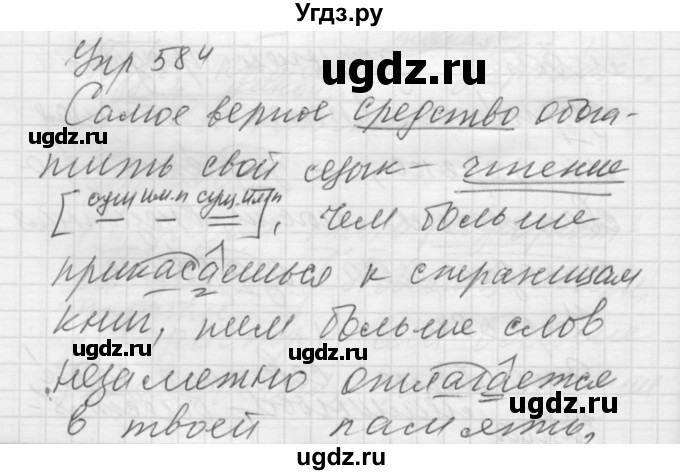 Угдз.ру
Упр 584
ugdz.ru
Самое верное средство обога-
ugdz.ru
тить свой язык – чтение
[сущ им.п – сущ. им п], Чем больше
ugdz.ru
прикасаешься к страницам
ugdz.ru
книг, тем больше слов
ugdz.ru ugdz.ru
незаметно отлагается
ugdz.ru
в твоей память,
ugdz.ru ugdz.ru